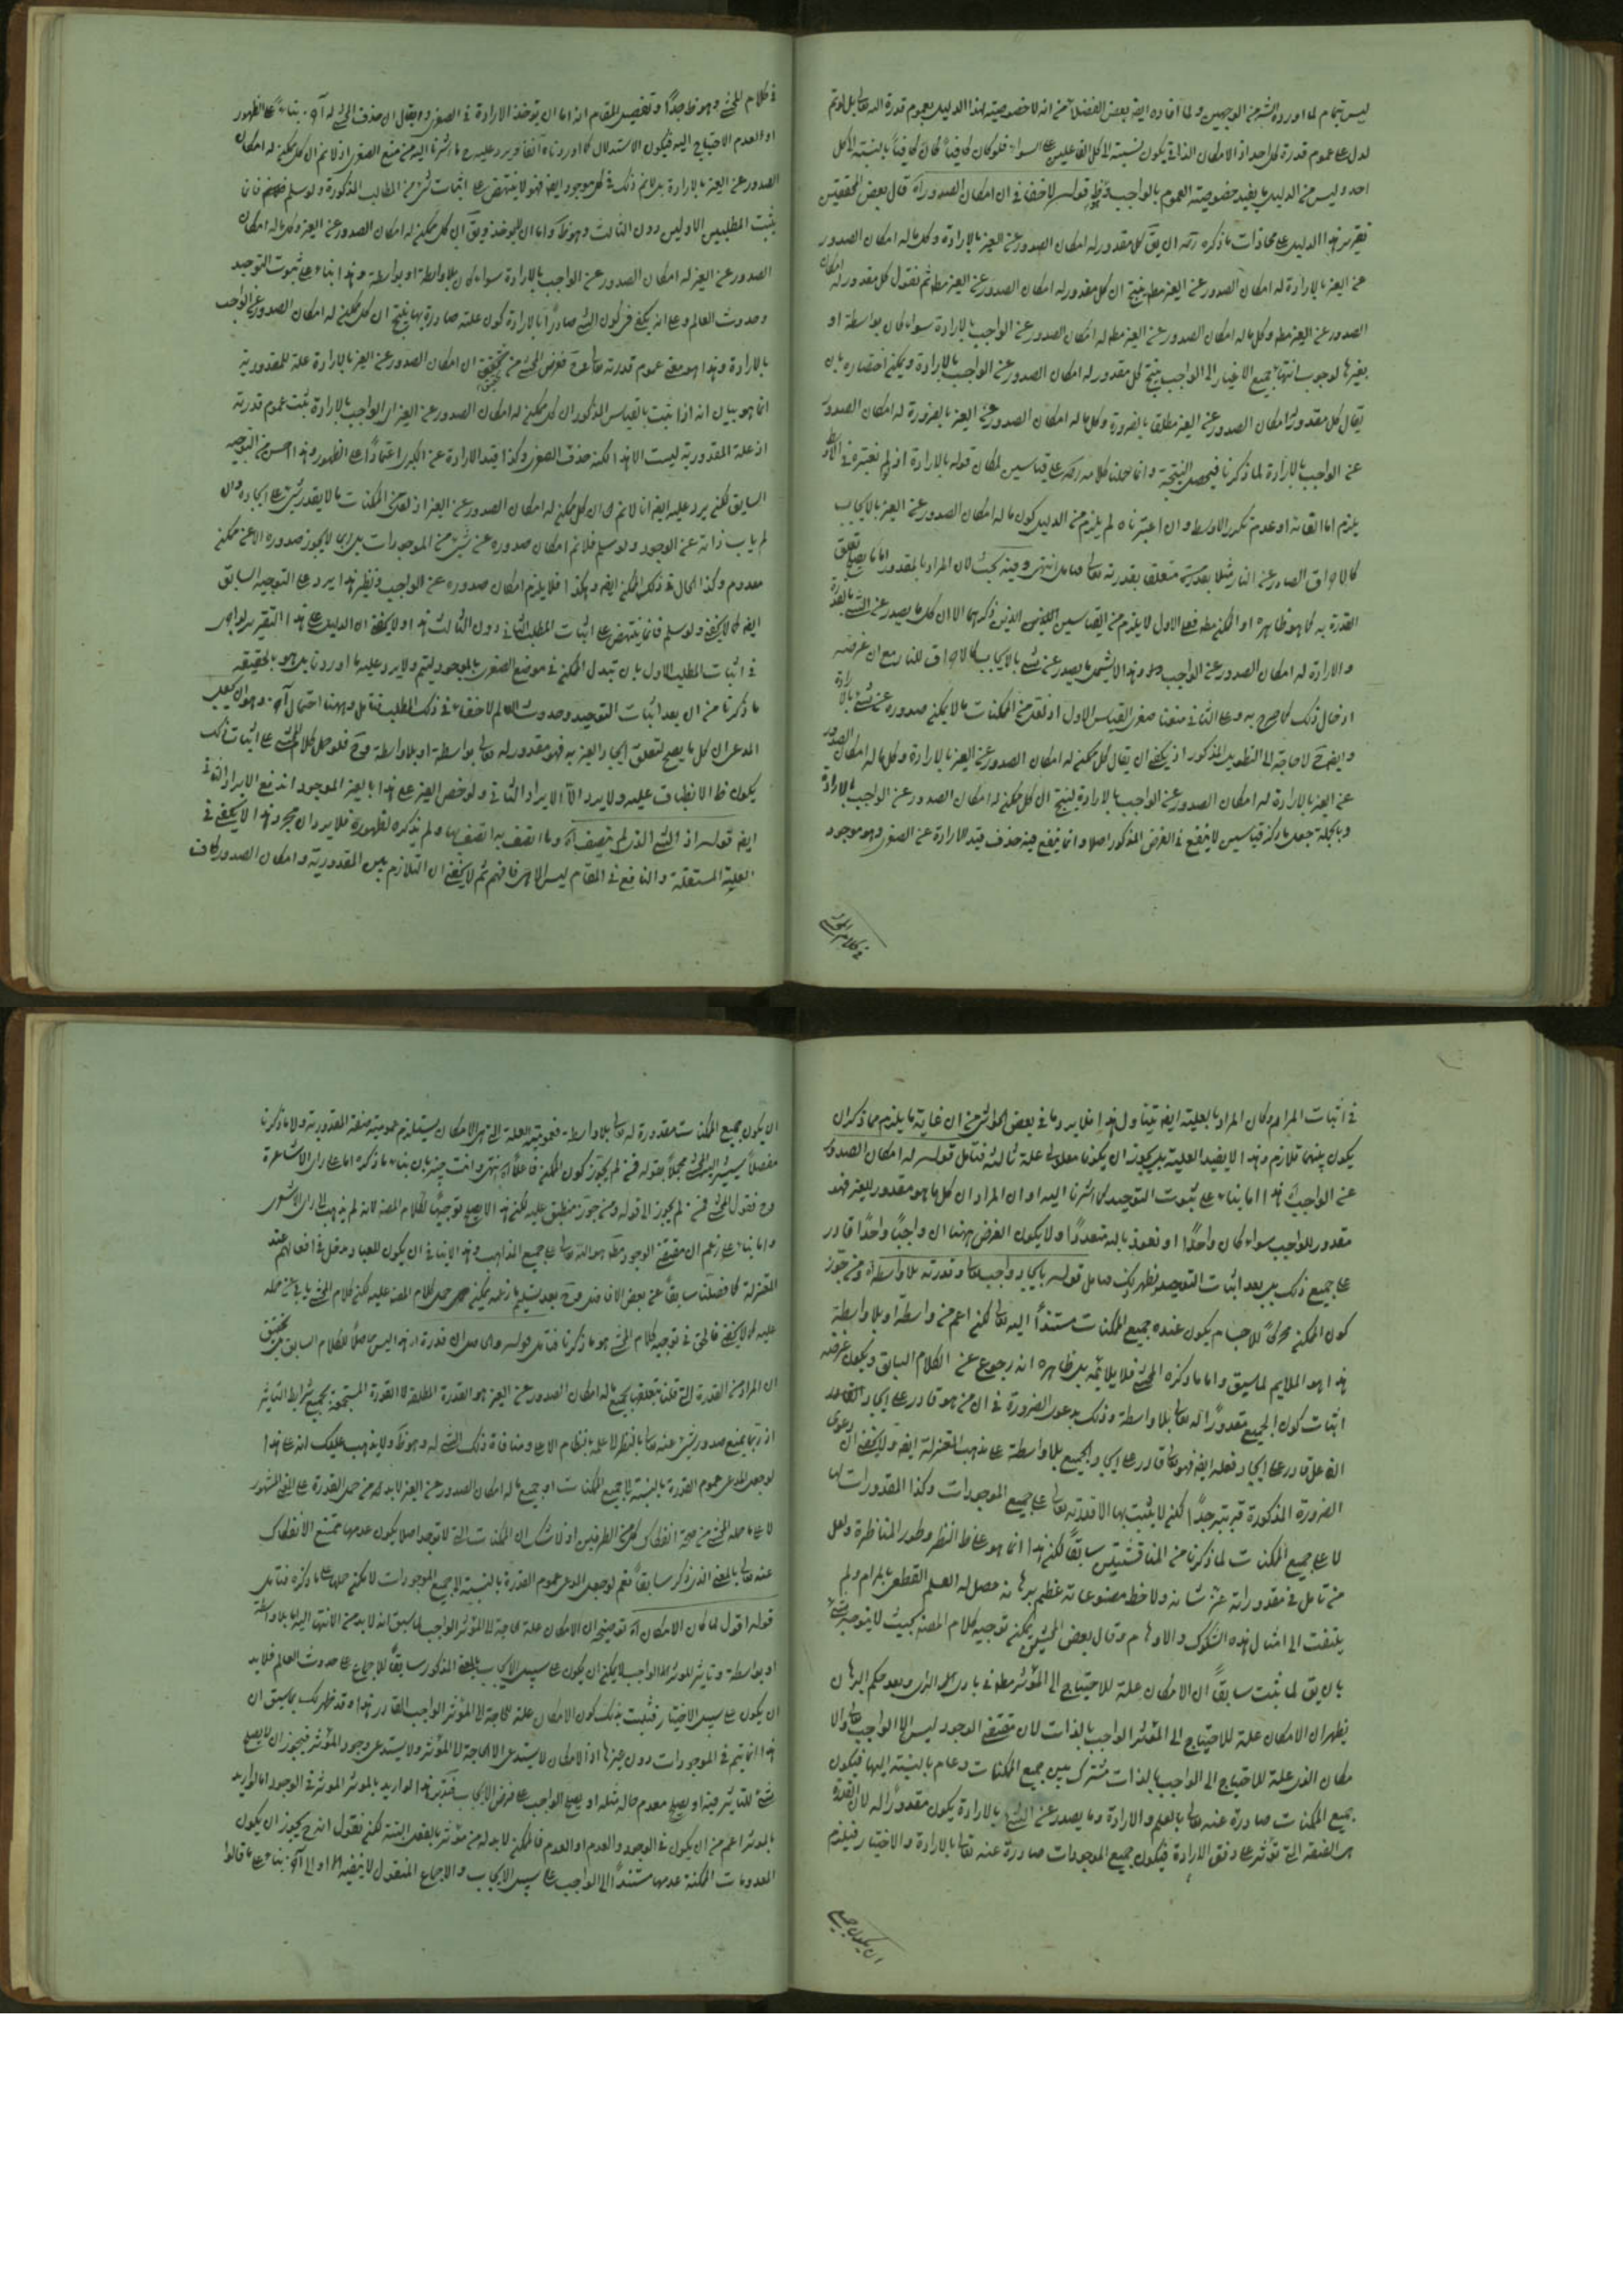 ليس بتمام لما اورده الشه من الوجهين ولما افاده ايض بعض الفضلآ من انه لا خصوصية لهذا الدليل بعموم قدرة الله تعالى بل لو تم
لدل على عموم قدرة كل احد اذ الامكان الذاتي يكون نسبته الى كل الفاعلين على السواء فلو كان كافياً لكان كافياً بالنسبة الى كل
احد وليس من الدليل ما يفيد خصوصية العموم بالواجب قوله لا خفاء في ان امكان الصدور آه قال بعض المحققين
تقرير هذا الدليل على محاذات ما ذكره ان يق كل مقدور له امكان الصدور عن الغير بالارادة وكل ما له امكان الصدور
عن الغير بالارادة له امكان الصدور عن الغير مطه ينتج ان كل مقدور له امكان الصدور عن الغير مطه ثم نقول كل مقدور له امكان
الصدور عن الغير مطه وكل ما له امكان الصدور عن الغير مطه له امكان الصدور عن الواجب بالارادة سواء كان بواسطة او
بغيرها لوجوب انتهاء جميع الاغيار الى الواجب ينتج كل مقدور له امكان الصدور عن الواجب بالارادة ويمكن اختصاره بان
يقال كل مقدور له امكان الصدور عن الغير مطلقا بالضرورة وكل ما له امكان الصدور عن الغير بالضرورة له امكان الصدور
عن الواجب بالارادة لما ذكرنا فيحصل النتيجة وانما حملنا كلامه على قياسين لمكان قوله بالارادة اذ لو لم نعتبره في الاوسط
يلزم اما الغائه او عدم تكرر الاوسط وان اعتبرناه لم يلزم من الدليل كون ما له امكان الصدور عن الغير بالايجاب
كالاحراق الصادر عن النار مثلا متعلق بقدرته تعالى انتهى وفيه بحث لان المراد بالمقدور اما ما يصح تعلق
القدرة به كما هو ظاهره او الممكن مطه فعلى الاول لا يلزم من القياسين اللذين ذكرهما الا ان كل ما يصدر عن الشئ بالقدرة
والارادة له امكان الصدور عن الواجب وهذا لا يشمل ما يصدر عن شئ بالايجاب كالاحراق للنار مع ان غرضه
ادخال ذلك كما صرح به وعلى الثاني منعنا صغرى القياس الاول اذ لعل من الممكنات ما لا يمكن صدوره عن شئ بالارادة
وايض ح لا حاجة الى التطويل المذكور اذ يكفى ان يقال كل ممكن له امكان الصدور عن الغير بالارادة وكل ما له امكان الصدور
عن الغير بالارادة له امكان الصدور عن الواجب بالارادة لينتج ان كل ممكن له امكان الصدور عن الواجب بالارادة
وبالجملة جعل ما ذكره قياسين لا ينفع في الغرض المذكور اصلا وانما ينفع فيه حذف قيد الارادة عن الصغرى وهو موجود
في كلام المحشى
في كلام المحشى وهو ظ جدًا وتلخيص المقام انه اما ان يؤخذ الارادة في الصغرى ويقال ان حذف المحشى له آه بناءً على الظهور
او لعدم الاحتياج اليه فيكون الاستدلال كما اوردناه آنفا ويرد عليه ح ما اشرنا اليه من منع الصغرى اذ لا نم ان كل ممكن له امكان
الصدور عن الغير بالارادة بل لا نم ذلك في كل موجود ايض فهو لا ينتهض على اثبات شئ من المطالب المذكورة ولو سلم فانما
يثبت المطلبين الاولين دون الثالث وهو ظ واما ان لا يؤخذ ويق ان كل ممكن له امكان الصدور عن الغير وكل ما له امكان
الصدور عن الغير له امكان الصدور عن الواجب بالارادة سواء كان بلا واسطة او بواسطة وهذا بناء على ثبوت التوحيد
وحدوث العالم وعلى انه يكفى في كون الشئ صادرًا بالارادة كون علته صادرة بها ينتج ان كل ممكن له امكان الصدور عن الواجب
بالارادة وهذا هو معنى عموم قدرته تعالى فغرض المحشى من تحقيق ان امكان الصدور عن الغير بالارادة علة للمقدورية
انما هو بيان انه اذا ثبت بالقياس المذكور ان كل ممكن له امكان الصدور عن الغير اى الواجب بالارادة ثبت عموم قدرته
اذ علة المقدورية ليست الا هذا لكنه حذف الصغرى وكذا قيد الارادة عن الكبرى اعتمادًا على الظهور وهذا احسن من التوجيه
السابق لكن يرد عليه ايض انا لا نم ان كل ممكن له امكان الصدور عن الغير اذ لعل من الممكنات ما لا يقدر شئ على ايجاده وان
لم ياب ذاته عن الوجود ولو سلم فلا نم امكان صدوره عن شئ من الموجودات بل ربما لا يجوز صدوره الا عن ممكن
معدوم وكذا الحال في ذلك الممكن ايض وهكذا فلا يلزم امكان صدوره عن الواجب ونظير هذا يرد على التوجيه السابق
ايض كما لا يخفى ولو سلم فانما ينتهض على اثبات المطلب الثاني دون الثالث هذا ولا يخفى ان الدليل على هذا التقرير لو اجرى
في اثبات المطلب الاول بان تبدل الممكن في موضع الصغرى بالموجود ليتم ولا يرد عليه ما اوردنا بل هو بالحقيقة
ما ذكرنا من ان بعد اثبات التوحيد وحدوث العالم لا خفاء في ذلك المطلب فتامل وههنا احتمال آخر وهو ان يجعل
المدعى ان كل ما يصح لتعلق ايجاد الغير به فهو مقدور له تعالى بواسطة او بلا واسطة وح فلو حمل كلام المحشى على اثبات ذلك
يكون ظ الانطباق عليه ولا يرد الا الايراد الثاني ولو خص الغير على هذا بالغير الموجود اندفع الايراد الثاني
ايض قوله اذ الشئ الذى لم يتصف آه وما اتصف به اتصف بها ولم يذكره لظهوره فلا يرد ان مجرد هذا لا يكفى في
العلية المستقلة والنافع في المقام ليس الا هى فافهم ثم لا يخفى ان التلازم بين المقدورية وامكان الصدور كاف
في اثبات المرام وكان المراد بالعلية ايض يتناول هذا فلا يرد ما في بعض الحواشى من ان غاية ما يلزم مما ذكر ان
يكون بينهما تلازم وهذا لا يفيد العلية بل يجوز ان يكونا معلولى علة ثالثة فتامل قوله له امكان الصدور
عن الواجب هذا اما بناء على ثبوت التوحيد كما اشرنا اليه او ان المراد ان كل ما هو مقدور للغير فهو
مقدور للواجب سواء كان واحدًا او نعوذ بالله متعددًا ولا يكون الغرض ههنا ان واجبًا واحدًا قادر
على جميع ذلك بل بعد اثبات التوحيد يظهر ذلك قوله بايجاد واجب تعالى وقدرته بلا واسطة آه ومن جوز
كون الممكن محركًا للاجسام يكون عنده جميع الممكنات مستندًا اليه تعالى لكن اعم من واسطة او بلا واسطة
هذا هو الملايم لما سبق واما ما ذكره المحشى فلا يلائمه بل ظاهره انه رجوع عن الكلام السابق ويكون غرضه
اثبات كون الجميع مقدورًا له تعالى بلا واسطة وذلك بدعوى الضرورة في ان من هو قادر على ايجاد القادر
الفاعل قادر على ايجاد فعله ايض فهو تعالى قادر على ايجاد الجميع بلا واسطة على مذهب المعتزلة ايض ولا يخفى ان دعوى
الضرورة المذكورة قريبة جدًا لكن لا يثبت بها الا قدرته تعالى على جميع الموجودات وكذا المقدورات لها
لا على جميع الممكنات لما ذكرنا من المناقشتين سابقًا لكن هذا انما هو على ظ النظر وطور المناظرة ولعل
من تامل في مقدوراته عز شانه ولاحظ مصنوعاته عظم برهانه حصل له العلم القطعى بالمرام ولم
يلتفت الى امثال هذه الشكوك والاوهام وقال بعض المحشين يمكن توجيه كلام المصنف بحيث لا يتوجه عليه شئ
بان يق لما ثبت سابقًا ان الامكان علة للاحتياج الى المؤثر مطه في بادى الراى وبعد حكم البرهان
يظهر ان الامكان علة للاحتياج الى المؤثر الواجب بالذات لان مقتضى الوجود ليس الا الواجب تعالى والا
مكان الذى علة للاحتياج الى الواجب بالذات مشترك بين جميع الممكنات وعام بالنسبة اليها فيكون
جميع الممكنات صادرة عنه تعالى بالعلم والارادة وما يصدر عن الشئ بالارادة يكون مقدورًا له لان القدرة
هى الصفة التى تؤثر على وفق الارادة فيكون جميع الموجودات صادرة عنه تعالى بالارادة والاختيار فيلزم
ان يكون جميع
ان يكون جميع الممكنات مقدورة له تعالى بلا واسطة فعمومية العلة التى هى الامكان يستلزم عمومية صفة المقدورية ولما ذكرنا
مفصلًا يشير المحشى مجملًا بقوله فمن لم يجوز كون الممكن فاعلًا آه انتهى وانت خبير بان بناء ما ذكره اما على راى الاشاعرة
وح فقول المحشى فمن لم يجوز الى قوله ومن جوز منطبق عليه لكن هذا لا يصلح توجيهًا لكلام المصنف لانه لم يذهب الى راى الاشعرى
واما بناء على زعم ان مفيض الوجود مطه هو الله تعالى على جميع المذاهب وهذا لا ينافى ان يكون للعباد مدخل في افعالهم عند
المعتزلة كما فصلنا سابقًا عن بعض الافاضل وح بعد تسليم ما زعمه يمكن حمل كلام المصنف عليه لكن كلام المحشى يابى عن حمله
عليه كما لا يخفى فالحق في توجيه كلام المحشى هو ما ذكرنا فتامل قوله والحاصل ان قدرة آه هذا ليس حاصلًا للكلام السابق بل تحقيق
ان المراد من القدرة التى قلنا بتعلقها بجميع ما له امكان الصدور عن الغير هو القدرة المطلقة لا القدرة المستجمعة بجميع شرايط التاثير
اذ ربما يمتنع صدور شئ عنه تعالى بالنظر الى علمه بالنظام الاعلى ومنافاة ذلك الشئ له وهو ظ ولا يذهب عليك انه على هذا
لو جعل المدعى عموم القدرة بالنسبة الى جميع الممكنات او جميع ما له امكان الصدور عن الغير لا بد من حمل القدرة على المعنى المشهور
لا على ما حمله المحشى من صحة انفكاك كل من الطرفين اذ لا شك ان الممكنات التى لا توجد اصلا يكون عدمها ممتنع الانفكاك
عنه تعالى بالمعنى الذى ذكر سابقًا نعم لو جعل المدعى عموم القدرة بالنسبة الى جميع الموجودات لامكن حملها على ما ذكره فتامل
قوله اقول لما كان الامكان آه توضيحه ان الامكان علة للحاجة الى المؤثر الواجب لما سبق انه لا بد من الانتهاء اليه اما بلا واسطة
او بواسطة وتاثير المؤثر الواجب لا يمكن ان يكون على سبيل الايجاب بالمعنى المذكور سابقًا للاجماع على حدوث العالم فلا بد
ان يكون على سبيل الاختيار فثبت بذلك كون الامكان علة للحاجة الى المؤثر الواجب القادر هذا وقد ظهر لك بما سبق ان
هذا انما يتم في الموجودات دون غيرها اذ الامكان لا يستدعى الا الحاجة الى المؤثر ولا يستدعى وجود المؤثر فيجوز ان لا يصلح
شئ للتاثير فيه او يصلح معدوم حاله مثله او يصلح الواجب على فرض الايجاب فتدبر هذا لو اريد بالمؤثر المؤثر في الوجود اما لو اريد
بالمؤثر اعم من ان يكون في الوجود والعدم او العدم فالممكن لا بد له من مؤثر بالفعل البتة لكن نقول انه ح يجوز ان يكون
المعدومات الممكنة عدمها مستندًا الى الواجب على سبيل الايجاب والاجماع المنقول لا ينفيه او الى آخر بناء على ما قالوا